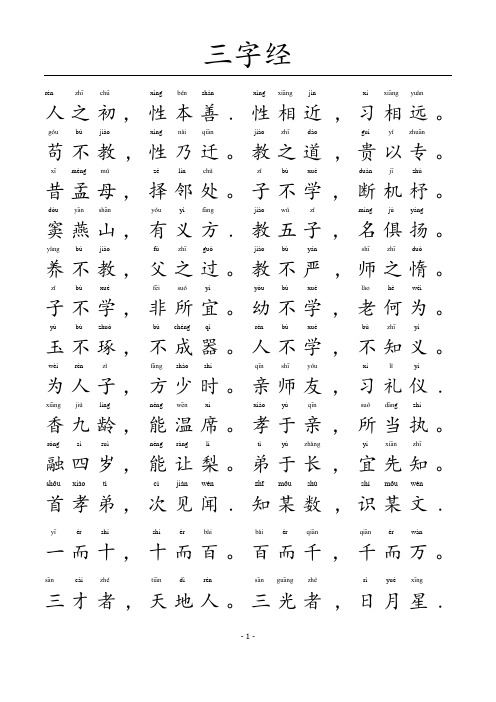 三字经
rén zhī chū xìng běn shàn xìng xiāng jìn xí xiāng yuǎn
人之初，性本善．性相近，习相远。
gǒu bù jiào xìng nǎi qiān jiào zhī dào guì yǐ zhuān
苟不教，性乃迁。教之道，贵以专。
xī mèng mǔ zé lín chǔ zǐ bù xué duàn jī zhù
昔孟母，择邻处。子不学，断机杼。
dòu yān shān yǒu yì fāng jiào wǔ zǐ míng jù yáng
窦燕山，有义方．教五子，名俱扬。
yǎng bù jiào fù zhī guò jiào bù yán shī zhī duò
养不教，父之过。教不严，师之惰。
zǐ bù xué fēi suǒ yí yòu bù xué lǎo hé wéi
子不学，非所宜。幼不学，老何为。
yù bù zhuó bù chéng qì rén bù xué bù zhī yì
玉不琢，不成器。人不学，不知义。
wéi rén zǐ fāng shào shí qīn shī yǒu xí lǐ yí
为人子，方少时。亲师友，习礼仪．
xiāng jiǔ líng néng wēn xí xiào yú qīn suǒ dāng zhí
香九龄，能温席。孝于亲，所当执。
róng sì suì néng ràng lí tì yú zhǎng yí xiān zhī
融四岁，能让梨。弟于长，宜先知。
shǒu xiào tì cì jiàn wén zhī mǒu shù shí mǒu wén
首孝弟，次见闻．知某数，识某文．
yī ér shí shí ér bǎi bǎi ér qiān qiān ér wàn
一而十，十而百。百而千，千而万。
sān cái zhě tiān dì rén sān guāng zhě rì yuè xīng
三才者，天地人。三光者，日月星．
- 1 -